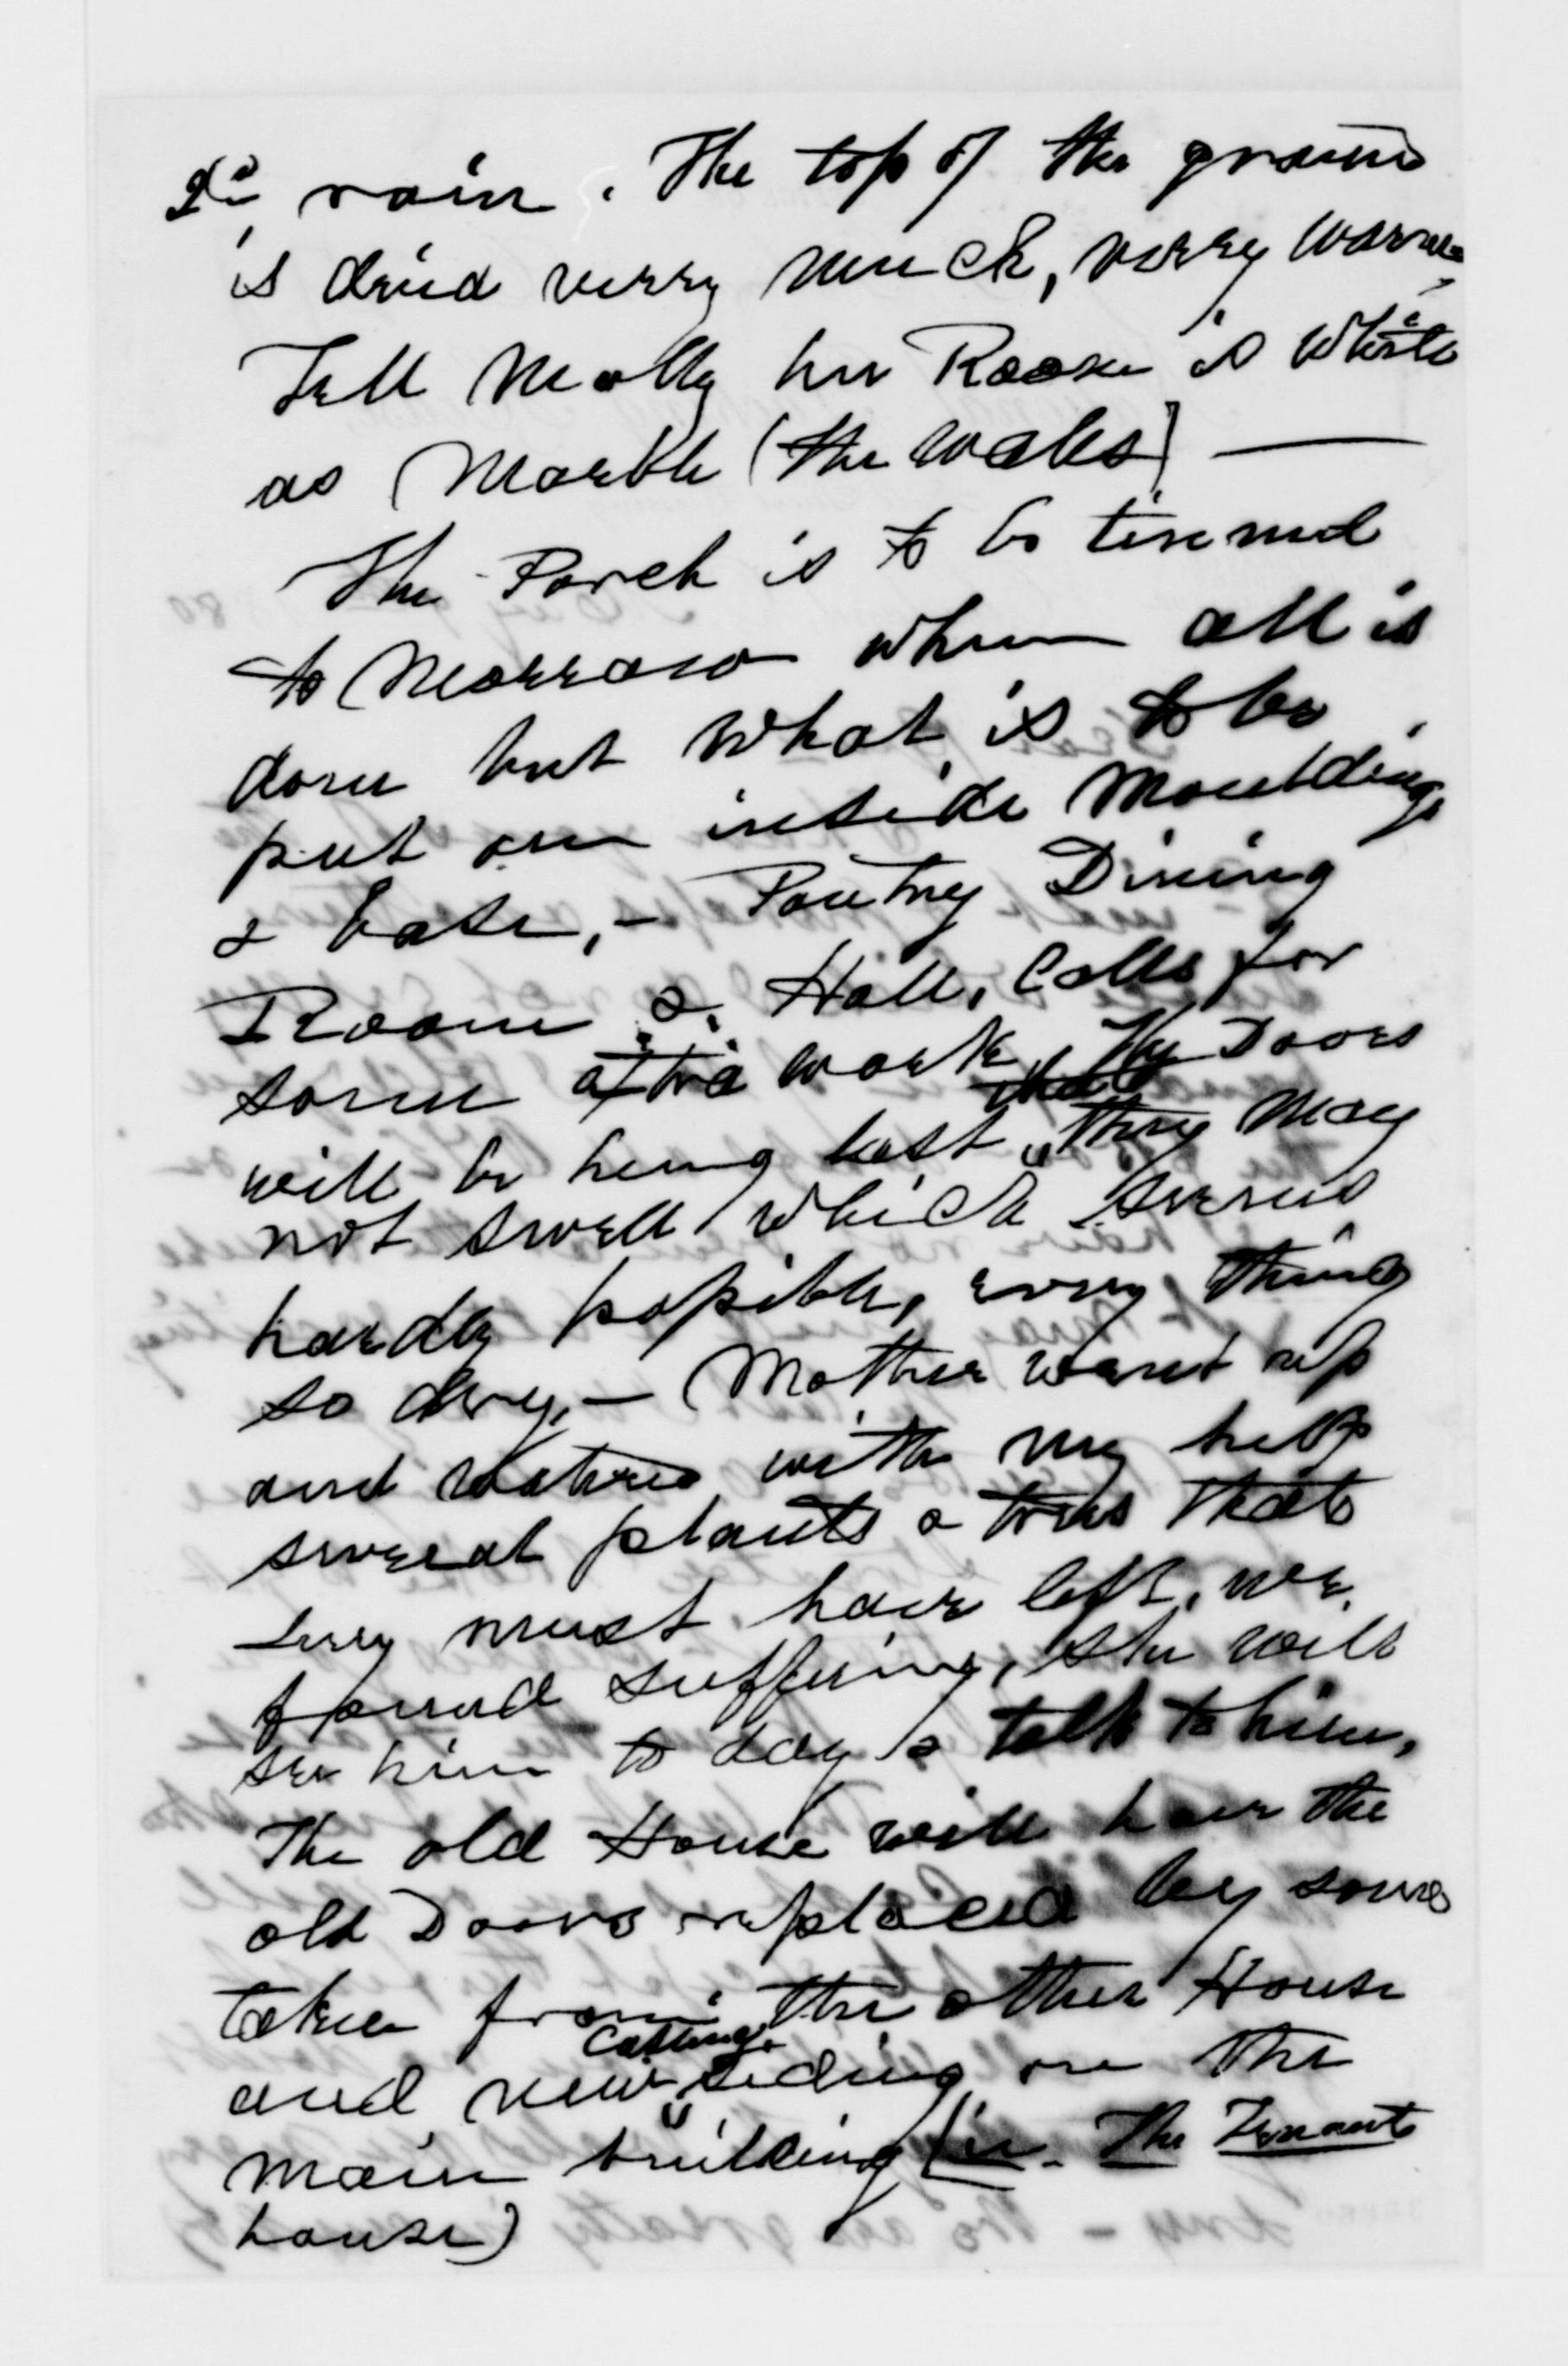 rain. The top of the ground
is dried verry much, verry warm
Tell Molly her Room is White
as Marble (the walls) —
The Porch is to be tinned
to Morrow when all is
done but what is to be
put on inside Mouldings
& base, – Pantry Dining
Room & Hall, Calls for
some extra work, The Doors
will be hung last, that they may
not swell which seems
hardly possible, every thing
so dry, – Mother went up
and watered with my help
several plants & trees that
must have left, we
found suffering, she will
see him to day & talk to him,
The old House will have the
old Doors replaced by some
taken from the other House
and new siding on the
main building (ie. The Tenant
house)